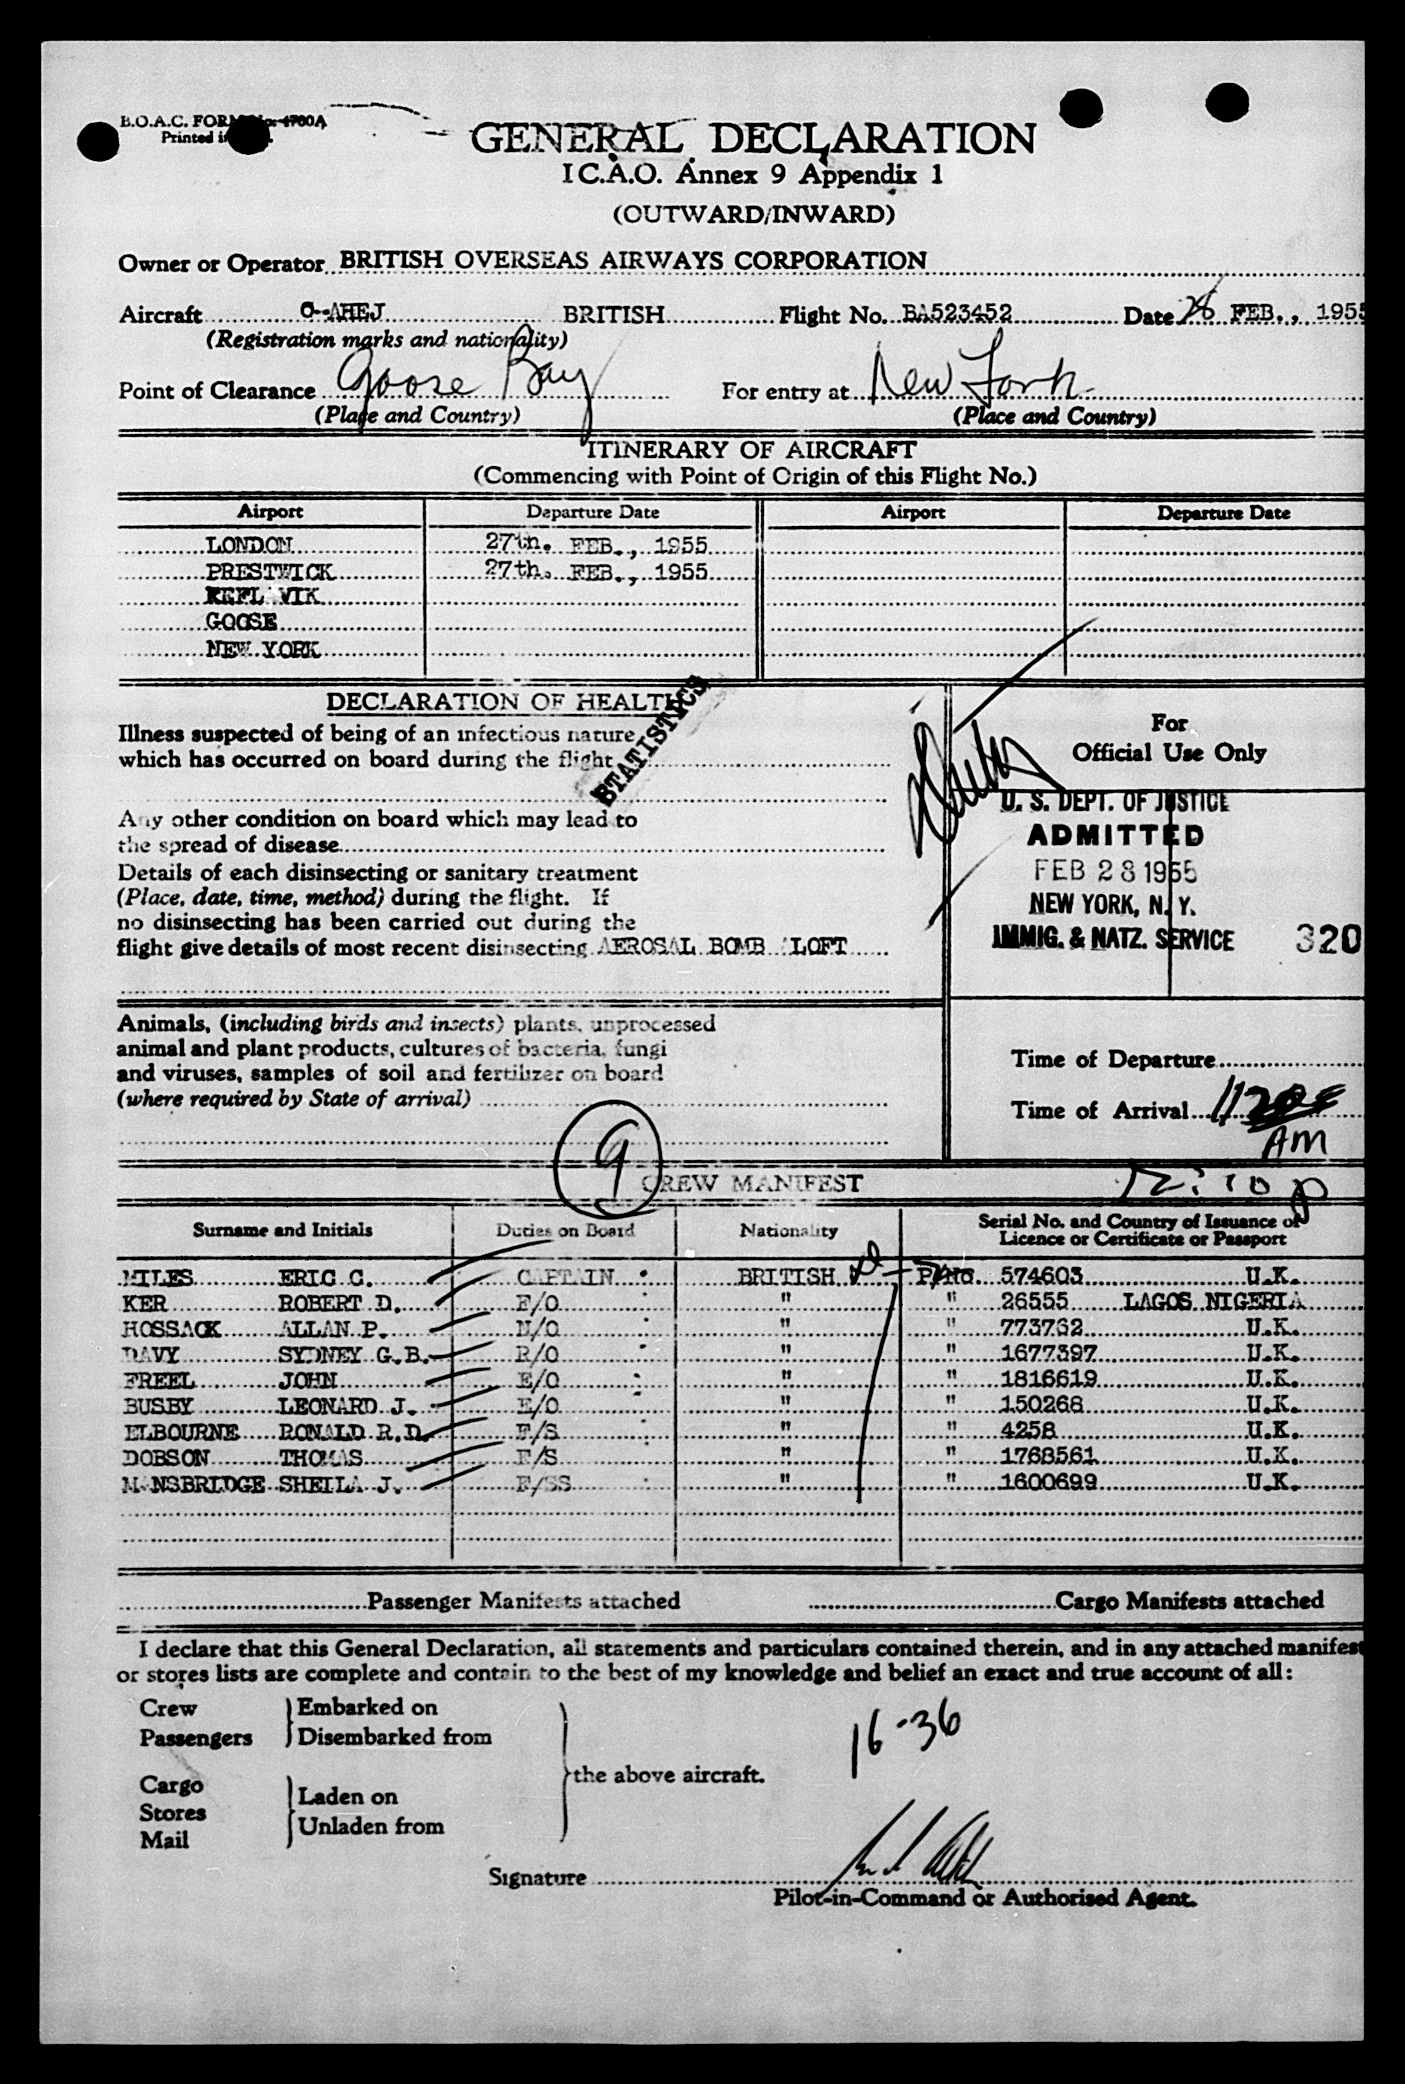 B.O.A.C. FORM No. 4700A
Printed in
GENERAL DECLARATION
I C.A.O. Annex 9 Appendix 1
(OUTWARD/INWARD)
Owner or Operator BRITISH OVERSEAS AIRWAYS CORPORATION
Aircraft G-AHEJ BRITISH Flight No. BA523452 Date 28 FEB., 1955
(Registration marks and nationality)
Point of Clearance Goose Bay For entry at New York
(Place and Country) (Place and Country)
ITINERARY OF AIRCRAFT
(Commencing with Point of Origin of this Flight No.)
Airport Departure Date Airport Departure Date
LONDON 27th. FEB., 1955
PRESTWICK 27th. FEB., 1955
KEFLAVIK
GOOSE
NEW YORK
DECLARATION OF HEALTH
STATISTICS
Illness suspected of being of an infectious nature
which has occurred on board during the flight
Any other condition on board which may lead to
the spread of disease
Details of each disinsecting or sanitary treatment
(Place, date, time, method) during the flight. If
no disinsecting has been carried out during the
flight give details of most recent disinsecting AEROSAL BOMB 'LOFT
For
Official Use Only
U. S. DEPT. OF JUSTICE
ADMITTED
FEB 28 1955
NEW YORK, N. Y.
IMMIG. & NATZ. SERVICE 320
Animals, (including birds and insects) plants, unprocessed
animal and plant products, cultures of bacteria, fungi
and viruses, samples of soil and fertilizer on board
(where required by State of arrival)
Time of Departure
Time of Arrival 1120
AM
9
CREW MANIFEST 12:10 p
Surname and Initials Duties on Board Nationality Serial No. and Country of Issuance of
Licence or Certificate or Passport
MILES ERIC C. CAPTAIN BRITISH P/No. 574603 U.K.
KER ROBERT D. F/O " " 26555 LAGOS NIGERIA
HOSSACK ALLAN P. N/O " " 773762 U.K.
DAVY SYDNEY G.B. R/O " " 1677397 U.K.
FREEL JOHN E/O " " 1816619 U.K.
BUSBY LEONARD J. E/O " " 150268 U.K.
ELBOURNE RONALD R.D. F/S " " 4258 U.K.
DOBSON THOMAS F/S " " 1768561 U.K.
MANSBRIDGE SHEILA J. F/SS " " 1600699 U.K.
Passenger Manifests attached Cargo Manifests attached
I declare that this General Declaration, all statements and particulars contained therein, and in any attached manifest
or stores lists are complete and contain to the best of my knowledge and belief an exact and true account of all:
Crew Embarked on
Passengers Disembarked from
16-36
the above aircraft.
Cargo
Laden on
Stores
Unladen from
Mail
Signature
Pilot-in-Command or Authorised Agent.